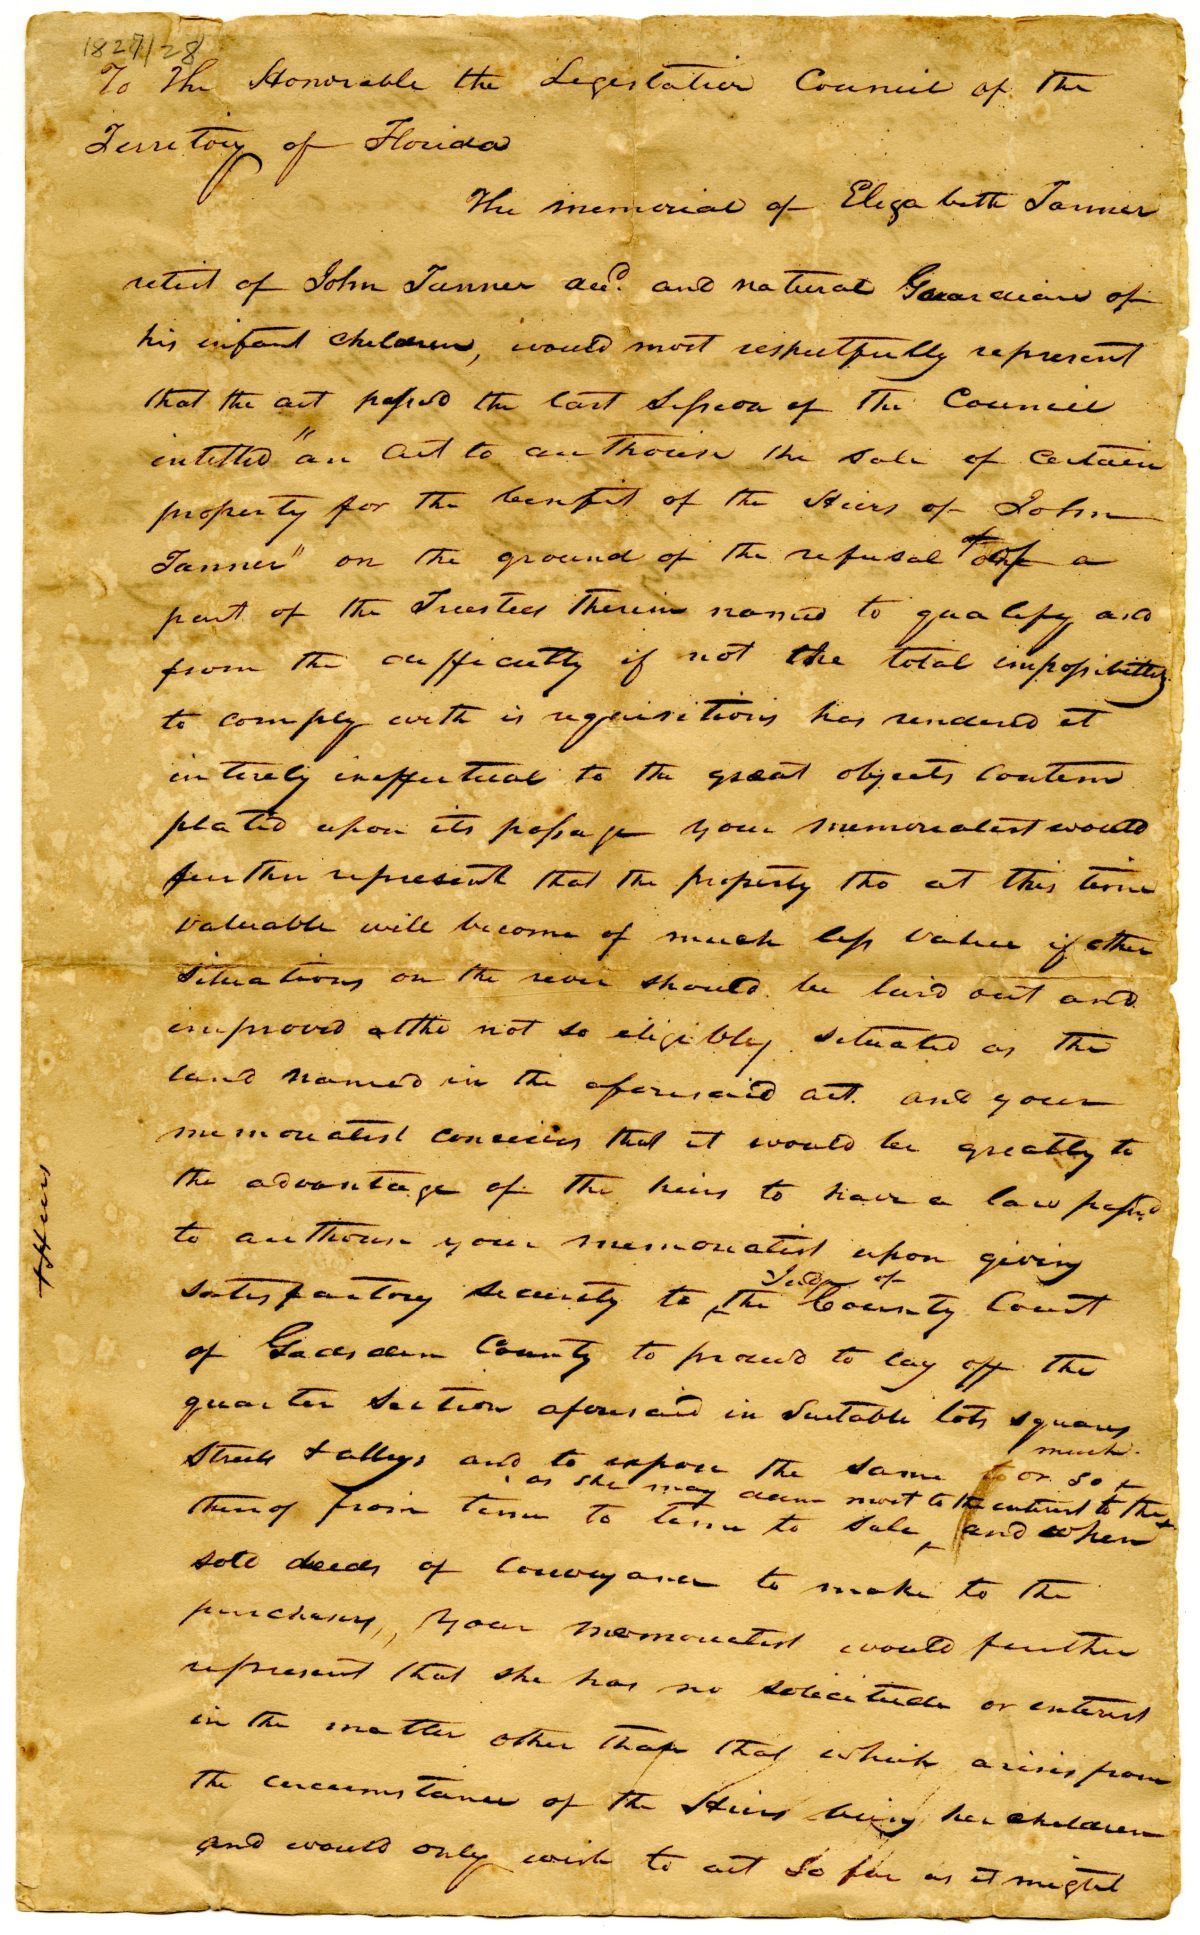 1827/28
To The Honorable the Legislative Council of the
Territory of Florida
The memorial of Elizabeth Tanner
relict of John Tanner decd. and natural Guardian of
his infant children, would most respectfully represent
that the act passed the last Session of the Council
intitled "an Act to authorise the sale of certain
property for the benefit of the Heirs of John
Tanner" on the ground of the refusal of a
part of the Trustees therein named to qualify and
from the difficulty if not the total impossibility
to comply with is requisitions has rendered it
intirely ineffectual to the great objects contem
plated upon its passage your memorialist would
further represent that the property tho at this time
valuable will become of much less value if other
situations on the river should be laid out and
improved altho not so eligibly situated as the
land named in the aforesaid act. and your
memorialist conceives that it would be greatly to
the advantage of the heirs to have a law passed
to authorise your memorialist upon giving
satisfactory security to the Judge of County Court
of Gadsden County to proceed to lay off the
quarter section aforesaid in suitable lots squares
streets & alleys and to expose the same or so much
thereof from time to time to sale as she may deem most to the interest to the and when
sold deeds of conveyance to make to the
purchasers,, your memorialist would further
represent that she has no solicitude or interest
in the matter other than that which arises from
the circumstance of the Heirs being her children
and would only wish to act so far as it might
Heirs